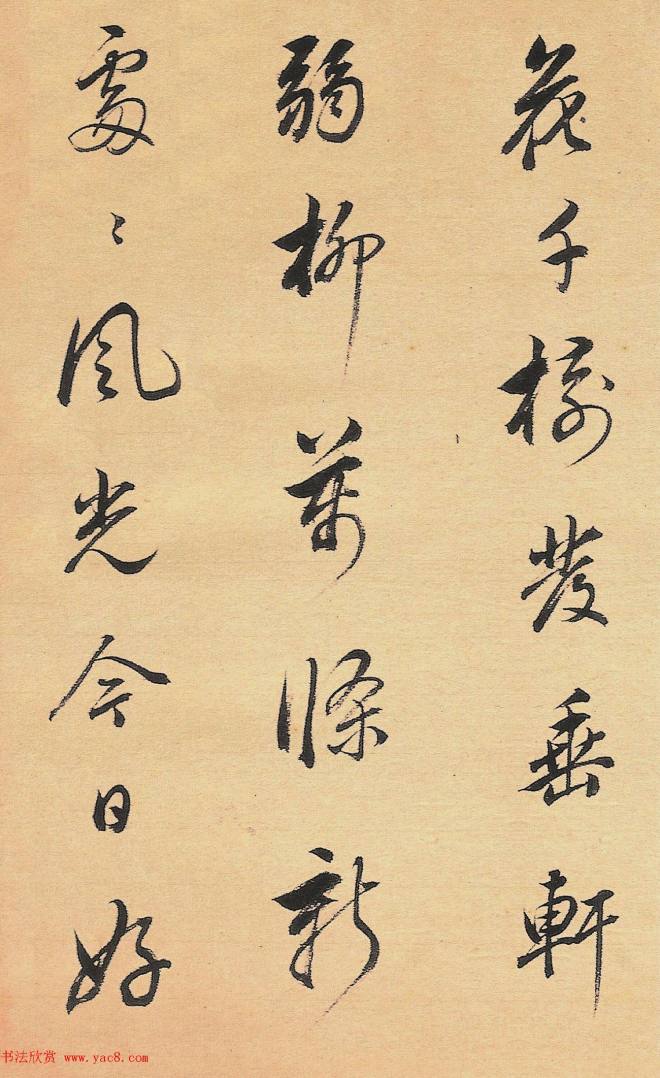 花千樹發垂軒
弱柳萬條新
處〻風光今日好
书法欣赏 www.yac8.com